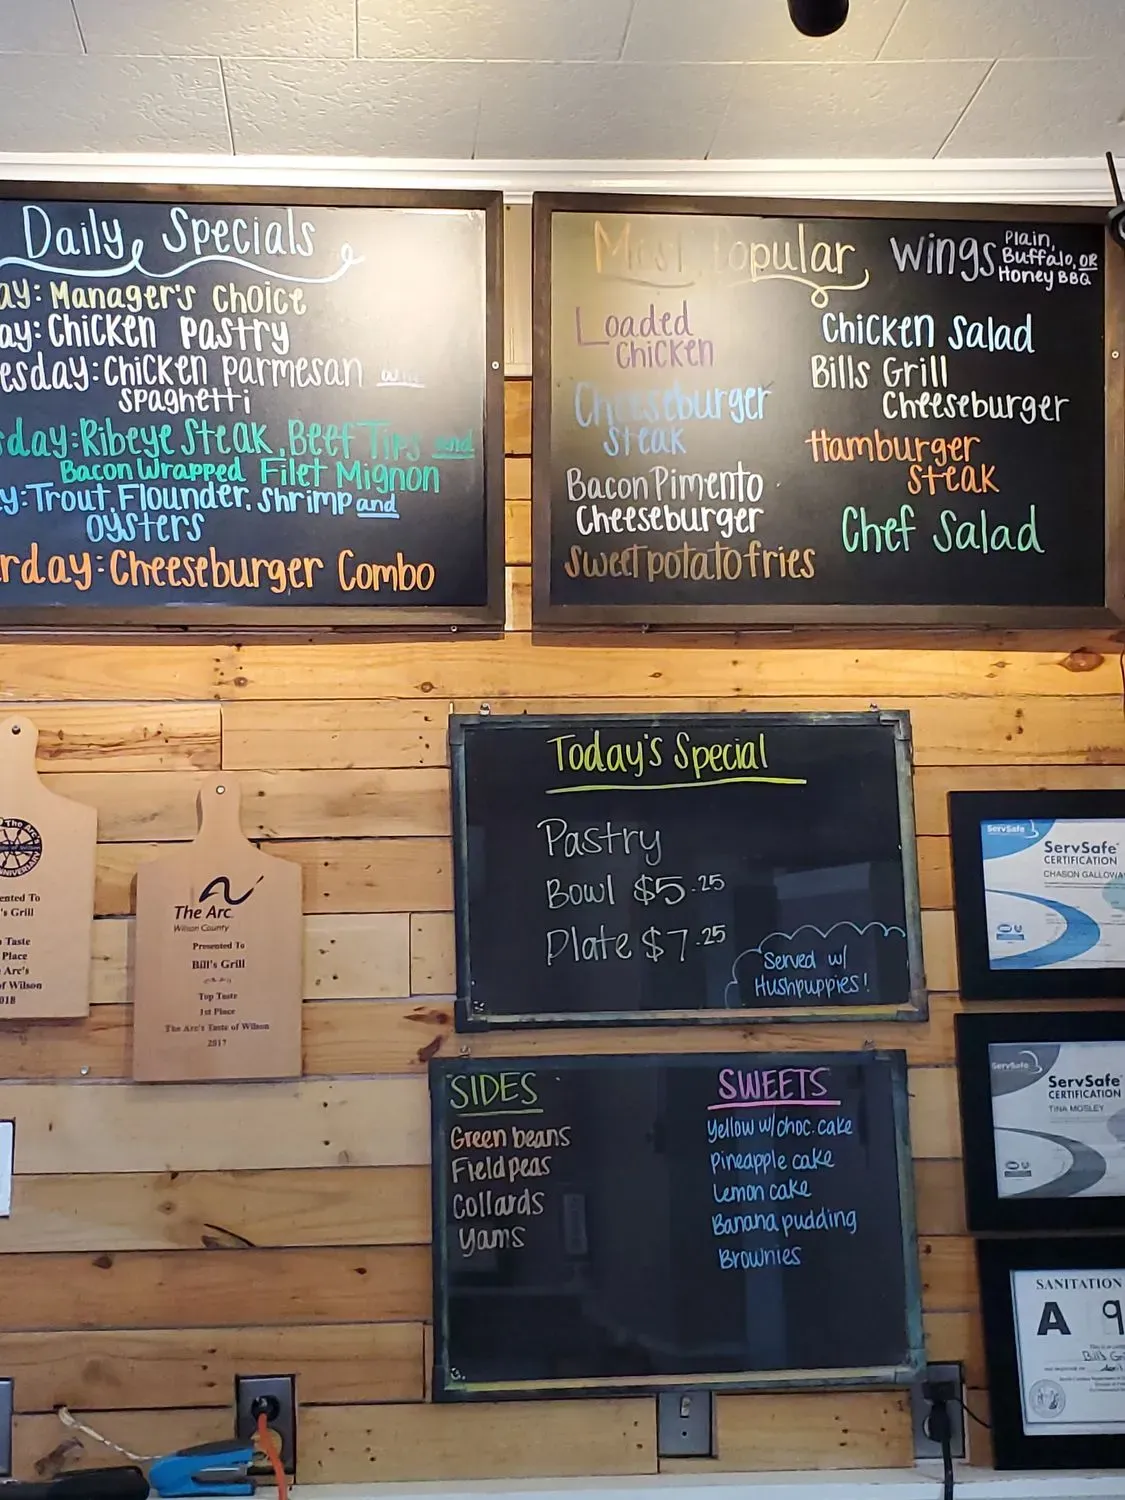 Daily Specials
ay: Manager's choice
ay: Chicken Pastry
esday: Chicken parmesan and
spaghetti
sday: Ribeye Steak, Beef Tips and
Bacon Wrapped Filet Mignon
y: Trout, Flounder, shrimp and
oysters
rday: Cheeseburger Combo
Most Popular
Loaded
Chicken
Cheeseburger
Steak
Bacon Pimento
Cheeseburger
sweet potato fries
Wings Plain,
Buffalo, OR
Honey BBQ
Chicken Salad
Bills Grill
Cheeseburger
Hamburger
steak
Chef Salad
Today's Special
Pastry
Bowl $5.25
Plate $7.25
Served w/
Hushpuppies!
SIDES
Green beans
Field peas
Collards
Yams
SWEETS
Yellow w/choc. cake
Pineapple cake
Lemon cake
Banana pudding
Brownies
The Arc
ented To
's Grill
Taste
Place
Arc's
of Wilson
018
The Arc
Wilson County
Presented To
Bill's Grill
Top Taste
1st Place
The Arc's Taste of Wilson
2017
ServSafe
ServSafe
CERTIFICATION
CHASON GALLOWA
ServSafe
ServSafe
CERTIFICATION
TINA MOSLEY
SANITATION
A 9
Bill's Gri